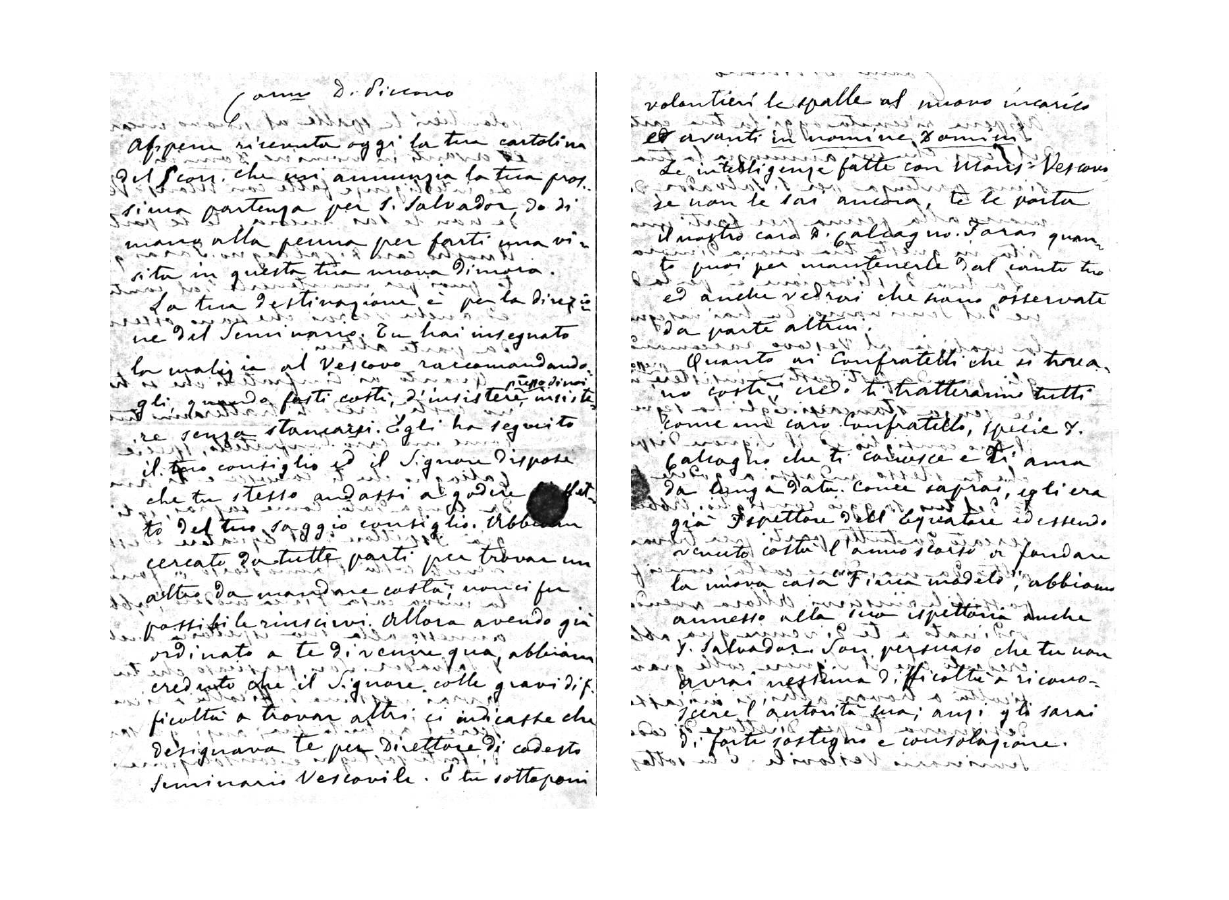 Carmo D. Piccono
Appena ricevuta oggi la tua cartolina
del Scors. che mi annunzia la tua pros-
sima partenza per S. Salvador, do di
mano alla penna per farti una vi-
sita in questa tua nuova dimora.
La tua destinazione è per la direzio-
ne del Seminario. Tu hai insegnato
la malizia al Vescovo raccomandando-
gli, quando fosti costì, d'insistere, insiste-
re senza stancarsi. Egli ha seguito
il tuo consiglio ed il Signore dispose
che tu stesso andassi a godere
to del tuo saggio consiglio. Abbiam
cercato da tutte parti per trovar un
altro da mandare costà; non ci fu
possibile riuscirvi. Allora avendo già
ordinato a te di venire qua, abbiam
creduto che il Signore colle gravi dif-
ficoltà a trovar altri ci indicasse che
designava te per Direttore di codesto
Seminario Vescovile. E tu sottoponi
volontieri le spalle al nuovo incarico
ed avanti in nomine Domini!
Le intelligenze fatte con Mons. Vescovo
se non le sai ancora, te le porta
il nostro caro D. Calcagno. Farai quan-
to puoi per mantenerle dal canto tuo
ed anche vedrai che siano osservate
da parte altrui.
Quanto ai Confratelli che si trova-
no costì, credo ti tratteranno tutti
come un caro Confratello, specie D.
Calcagno che ti conosce e ti ama
da lunga data. Come saprai, egli era
già Ispettore dell'Equatore ed essendo
venuto costà l'anno scorso a fondare
la nuova casa "Finca modelo", abbiamo
annesso alla sua ispettoria anche
S. Salvador. Son persuaso che tu non
avrai nessuna difficoltà a ricono-
scere l'autorità sua; anzi gli sarai
di forte sostegno e consolazione.